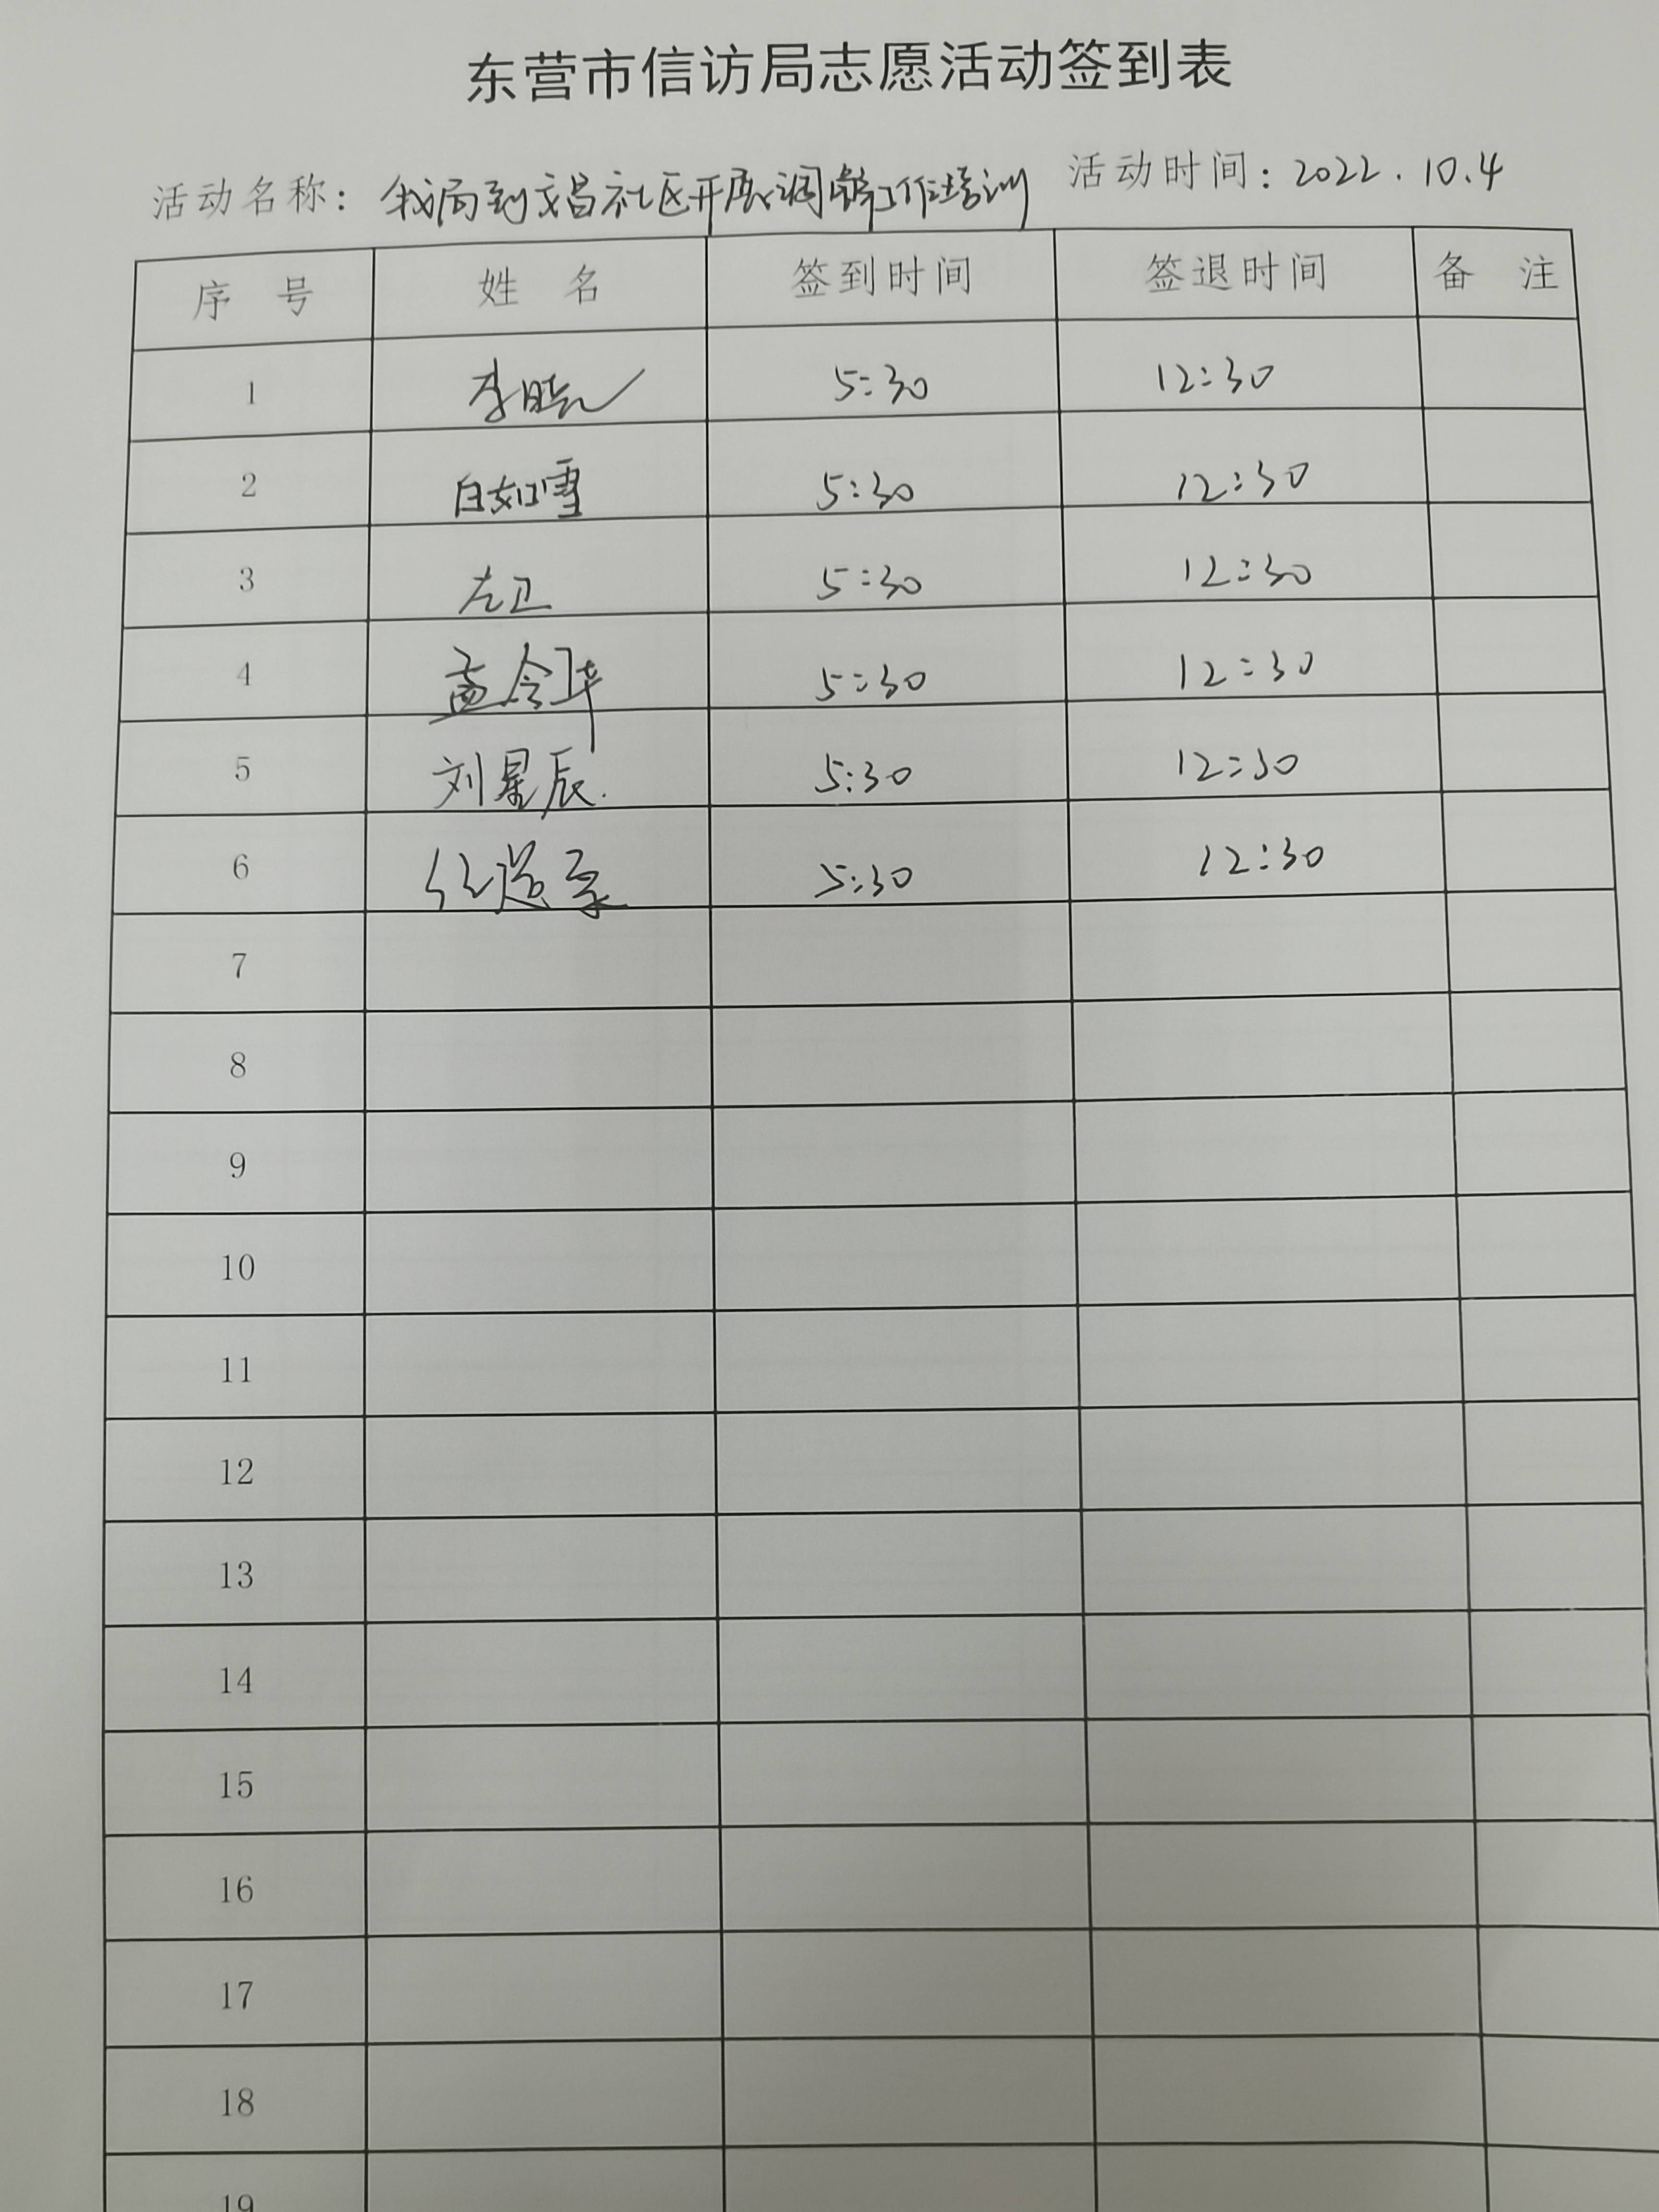 东营市信访局志愿活动签到表
活动名称：我局到文昌社区开展调解工作培训 活动时间：2022.10.4
序 号 姓 名 签到时间 签退时间 备 注
1 李晓 5:30 12:30
2 白如雪 5:30 12:30
3 左卫 5:30 12:30
4 孟令华 5:30 12:30
5 刘星辰. 5:30 12:30
6 5:30 12:30
7
8
9
10
11
12
13
14
15
16
17
18
19